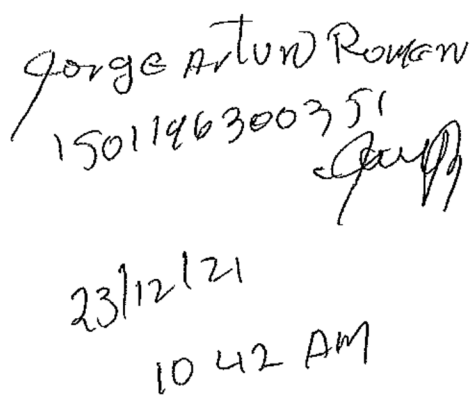 Jorge Arturo Roman
1501196300351
23/12/21
10 42 AM